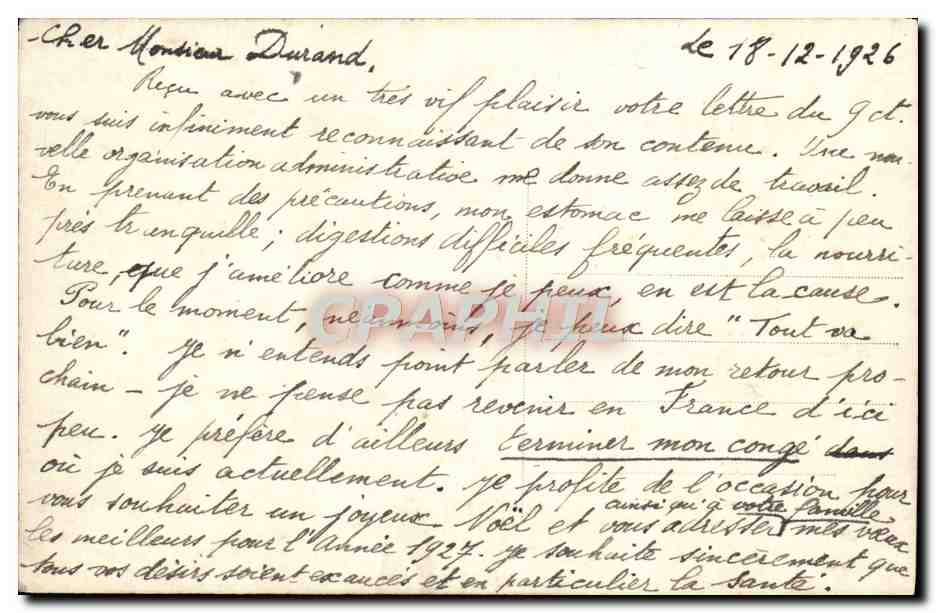 Cher Monsieur Durand,
Le 18-12-1926
Reçu avec un très vif plaisir votre lettre du 9 ct.
vous suis infiniment reconnaissant de son contenu. Une nou-
velle organisation administrative me donne assez de travail.
En prenant des précautions, mon estomac me laisse à peu
près tranquille; digestions difficiles fréquentes, la nourri-
ture, que j'améliore comme je peux, en est la cause.
Pour le moment, néanmoins, je peux dire "Tout va
bien". Je n'entends point parler de mon retour pro-
chain - je ne pense pas revenir en France d'ici
peu. Je préfère d'ailleurs terminer mon congé dans
où je suis actuellement. Je profite de l'occasion pour
ainsi qu'à votre famille
vous souhaiter un joyeux Noël et vous adresser mes vœux
les meilleurs pour l'Année 1927. Je souhaite sincèrement que
tous vos désirs soient exaucés et en particulier la santé.
CPARAMA CPAPHIL